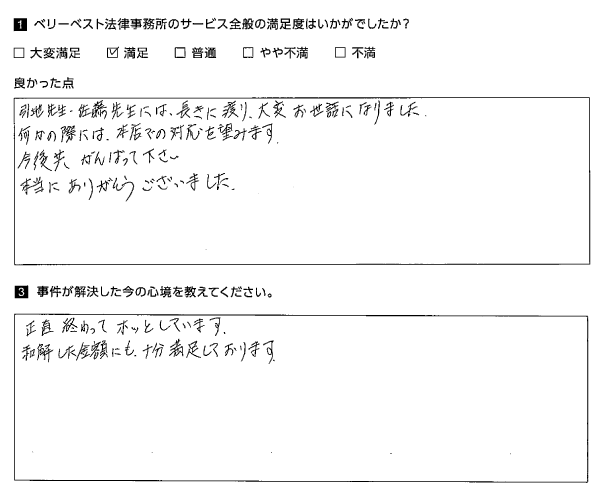 1 ベリーベスト法律事務所のサービス全般の満足度はいかがでしたか？
□ 大変満足 ☑ 満足 □ 普通 □ やや不満 □ 不満
良かった点
引地先生・佐藤先生には、長きに渡り、大変お世話になりました。
何かの際には、本店での対応を望みます。
今後共、がんばって下さい
本当にありがとうございました。
3 事件が解決した今の心境を教えてください。
正直 終わって ホッとしています。
和解した金額にも、十分満足しております。